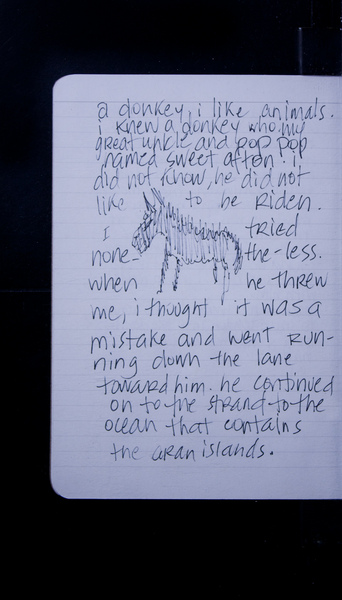 a donkey, i like animals.
i knew a donkey who my
great uncle and pop pop
named sweet afton! i
did not know, he did not
like to be riden.
I tried
none- the-less.
when he threw
me, i thought it was a
mistake and went run-
ning down the lane
toward him. he continued
on to the strand to the
ocean that contains
the aran islands.